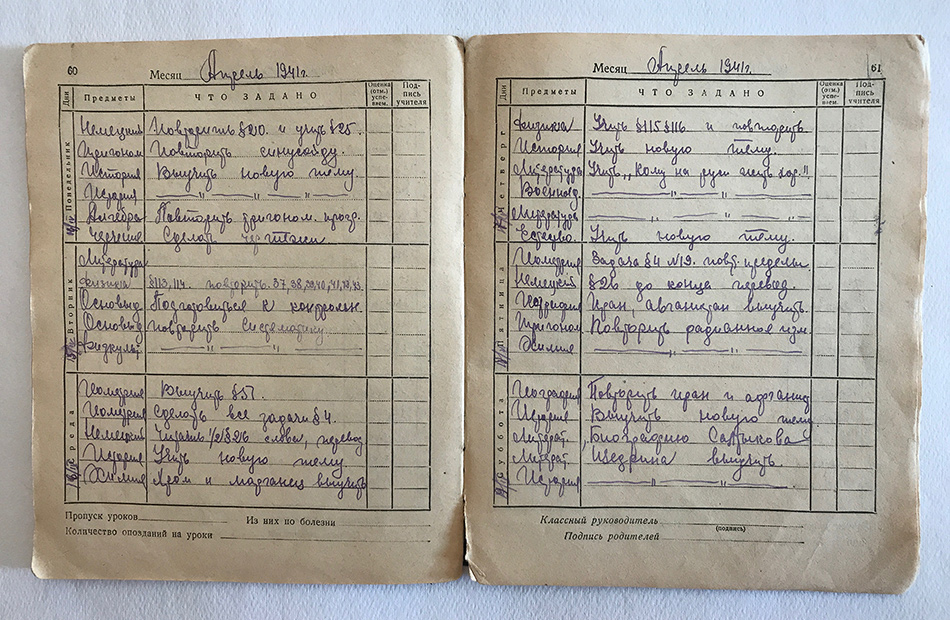 60
Месяц Апрель 1941г.
Дни Предметы ЧТО ЗАДАНО Оценка (отм.) успеваем. Подпись учителя
Понедельник
Немецкий Повторить § 20. и учить § 25.
Тригоном Повторить синусоиду.
История Выучить новую тему.
История — " — " — "
Алгебра Повторить тригоном.
Черчение Сделать чертежи
Вторник
Литература
Физика §113, 114. повторить. 37, 38,
Основыд Подготовиться к контрольн.
Основыд повторить систематику.
Физкульт. — " — "
Среда
Геометрия Выучить § 51.
Геометрия Сделать все задачи § 4.
Немецкий Читать 1/2 § 26 слова, перевод
История Учить новую тему.
Химия Хром и марганец выучить
Пропуск уроков Из них по болезни
Количество опозданий на уроки
61
Месяц Апрель 1941г.
Дни Предметы ЧТО ЗАДАНО Оценка (отм.) успеваем. Подпись учителя
Четверг
Физика Учить § 115 § 116 и повторить
История Учить новую тему.
Литература Учить „Кому на руси жить хор."
Военнод. — " — " — "
Литература — " — " — "
Естество. Учить новую тему.
Пятница
Геометрия Задача § 4 № 19. повт. пределы
Немецкий § 26 до конца перевод.
География Иран, авганистан выучить.
Тригоном Повторить радианное изм.
Химия — " — "
Суббота
География Повторить иран и афганис
История Выучить новую тему
Литерат. Биографию Салтыкова
Литерат. Щедрина выучить.
История — " — "
Классный руководитель
(подпись)
Подпись родителей